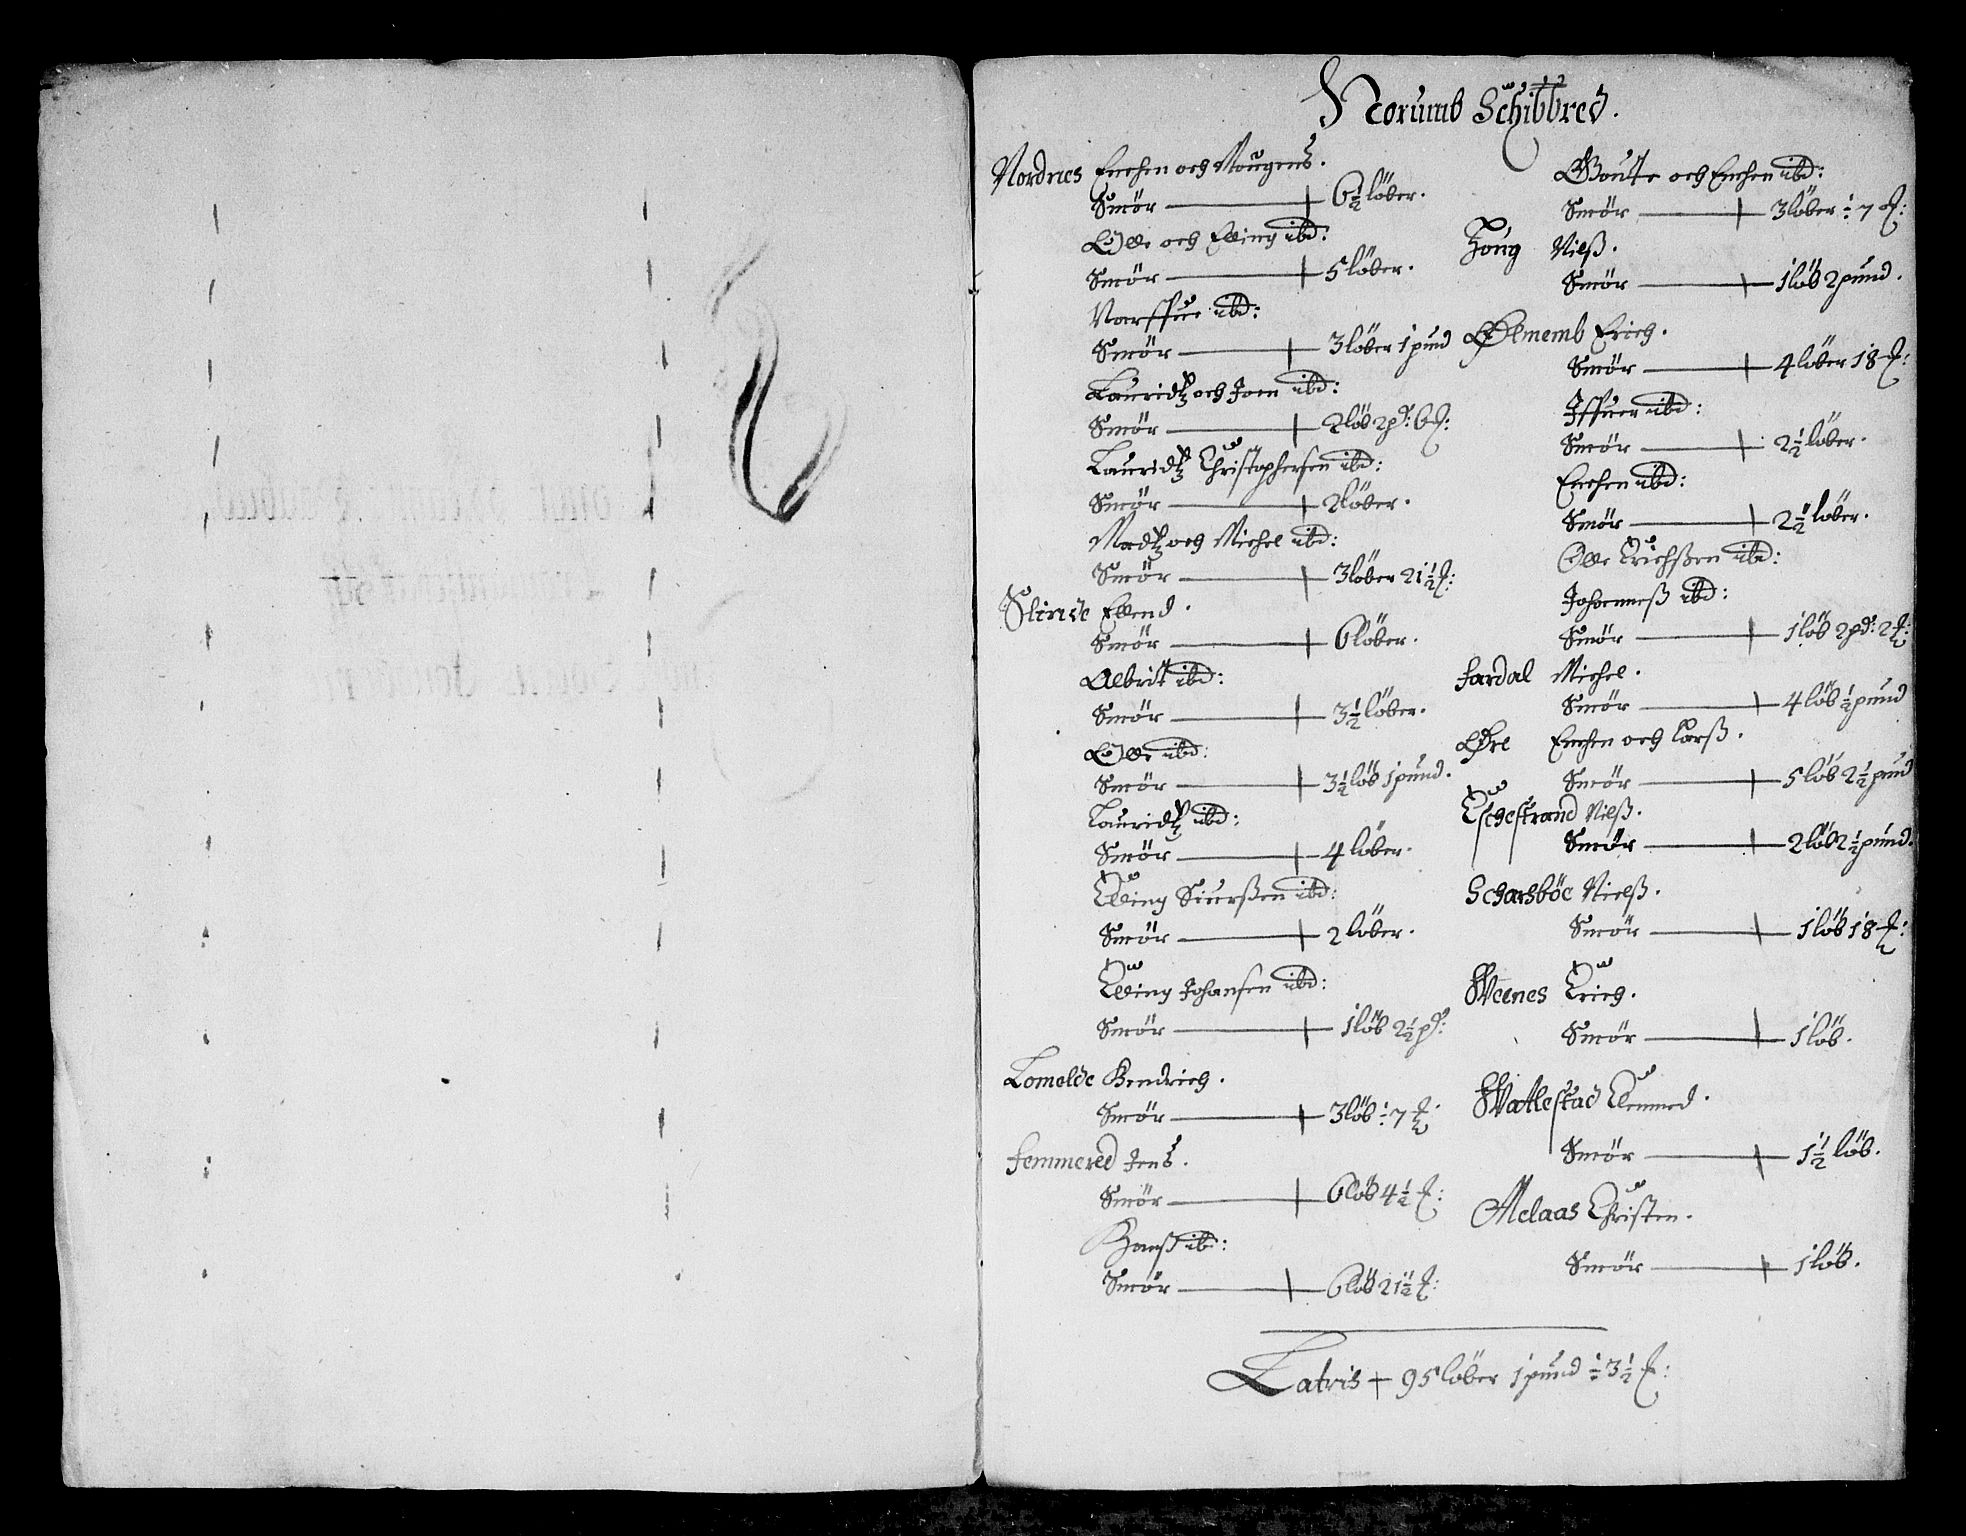 Norumb Schibbred.
Nordnes Enchen och Mougens.
Smör 6½ löber.
Olle och Elling ibd:
Smör 5 löber.
Narffue ibd:
Smör 3 löber 1 pund
Lauridtz och Joen ibd:
Smör 2 löb 2 pd: 6 ℔:
Lauridtz Christophersen ibd:
Smör 2 löber.
Madtz och Michel ibd:
Smör 3 löber 21½ ℔:
Slinde Ellend.
Smör 6 löber.
Albrit ibd:
Smör 3½ löber.
Olle ibd:
Smör 3½ löb 1 pund.
Lauridtz ibd:
Smör 4 löber.
Elling Siurßen ibd:
Smör 2 löber.
Elling Johansen ibd:
Smör 1 löb 2½ pd:
Lomelde Hendrich.
Smör 3 löb ÷ 7 ℔
Femmered Jens.
Smör 6 löb 4½ ℔:
Hanß ibd:
Smör 6 löb 21½ ℔:
Goute och Enchen ibd:
Smör 3 löber ÷ 7 ℔:
Houg Nielß.
Smör 1 löb 2 pund.
Ølmemb Erich.
Smör 4 löber 18 ℔:
Iffuer ibd:
Smör 2½ löber.
Enchen ibd:
Smör 2½ löber.
Olle Erichßen ibd:
Johanneß ibd:
Smör 1 löb 2 pd: 2 ℔:
Fardal Michel.
Smör 4 löb ½ pund
Øre Enchen och Larß.
Smör 5 löb 2½ pund
Eschestrand Nielß.
Smör 2 löb 2½ pund.
Scharsböe Nielß.
Smör 1 löb 18 ℔:
Weenes Erich.
Smör 1 löb.
Watlestad Clemmed.
Smör 1½ löb.
Melaas Christen.
Smör 1 löb.
Latris 95 löber 1 pund ÷ 3½ ℔: